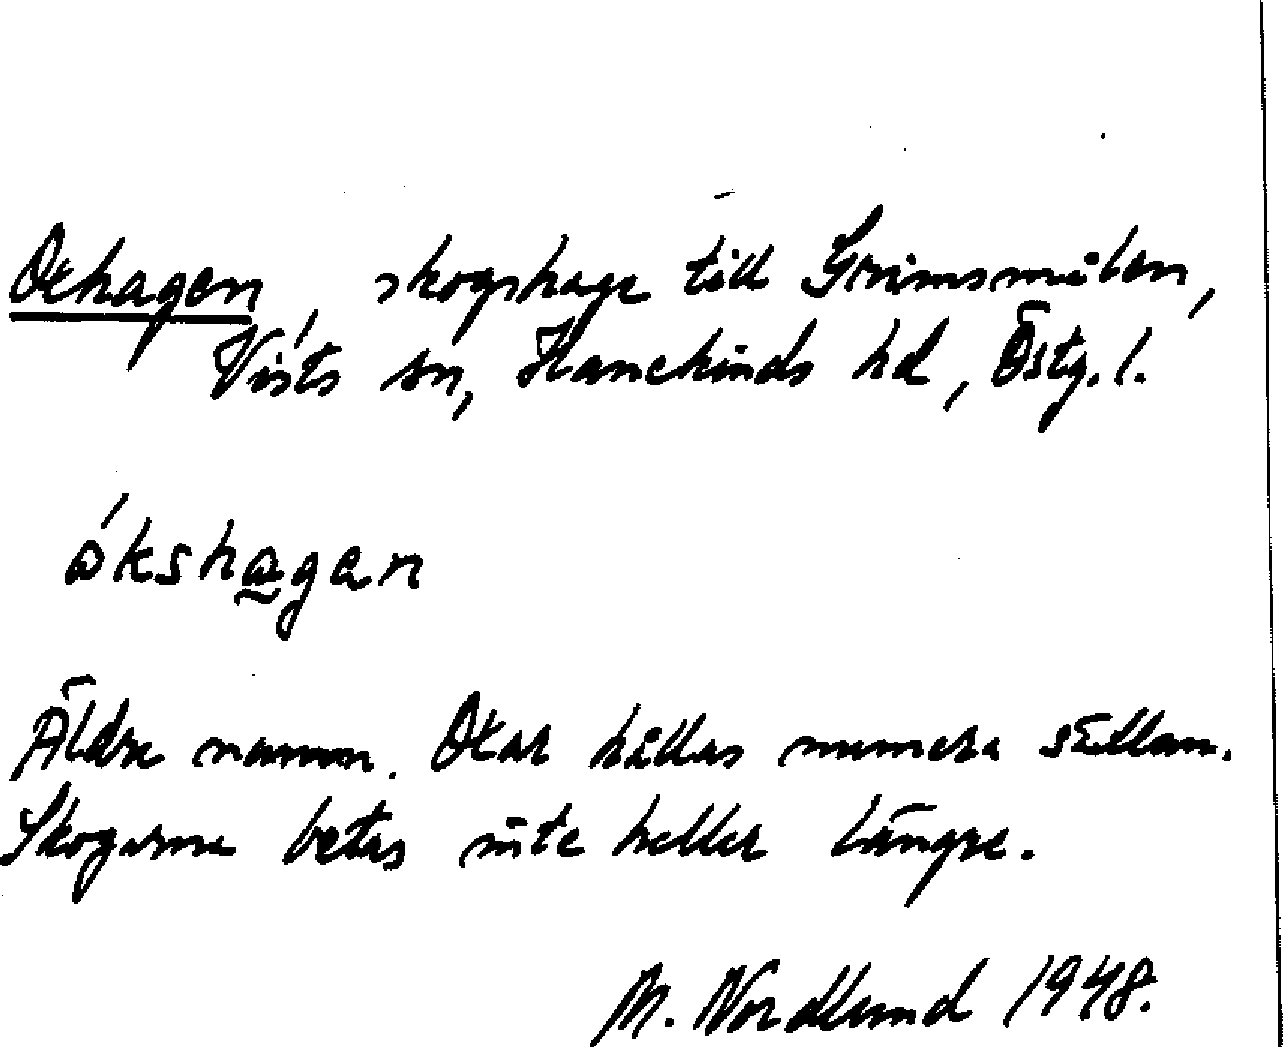 Oxhagen, skogshage till Grimsmålen,
Vists sn, Hanekinds hd, Östg. l.
ókshagan
Äldre namn. Oxar hållas numera sällan.
Skogarna betas inte heller längre.
M. Nordlund 1948.